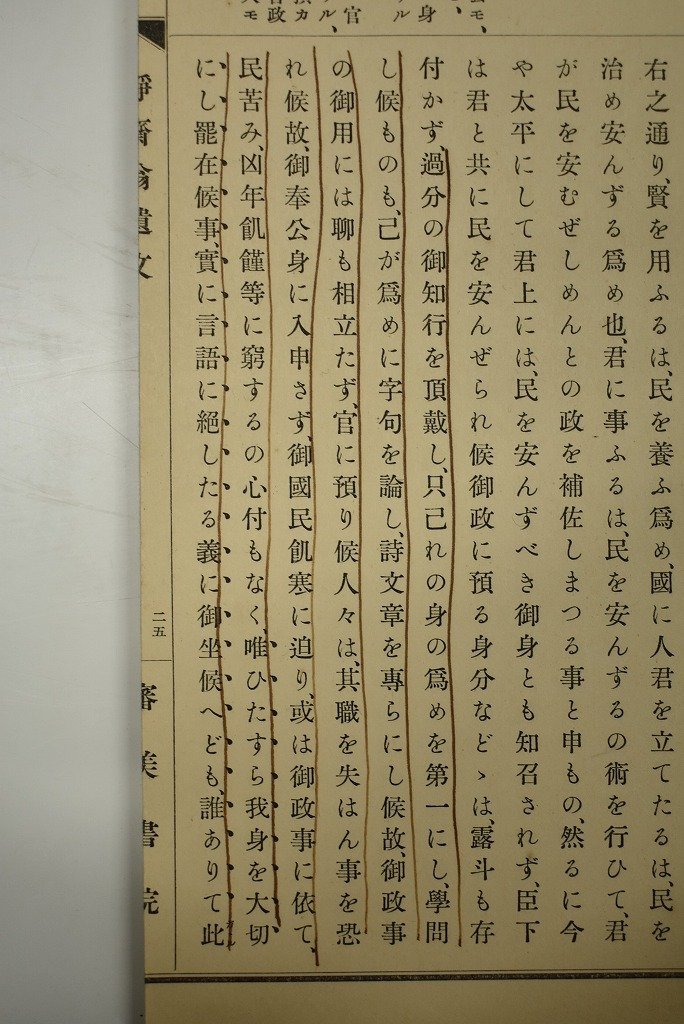 右之通り、賢を用ふるは、民を養ふ爲め、國に人君を立てたるは、民を
治め安んずる爲め也、君に事ふるは、民を安んずるの術を行ひて、君
が民を安むぜしめんとの政を補佐しまつる事と申もの、然るに今
や太平にして君上には、民を安んずべき御身とも知召されず、臣下
は君と共に民を安んぜられ候御政に預る身分などゝは、露斗も存
付かず、過分の御知行を頂戴し、只己れの身の爲めを第一にし、學問
し候ものも、己が爲めに字句を論し、詩文章を專らにし候故、御政事
の御用には聊も相立たず、官に預り候人々は、其職を失はん事を恐
れ候故、御奉公身に入申さず、御國民飢寒に迫り、或は御政事に依て、
民苦み、凶年飢饉等に窮するの心付もなく、唯ひたすら我身を大切
にし罷在候事、實に言語に絶したる義に御坐候へども、誰ありて此
靜齋翁遺文
二五
審美書院